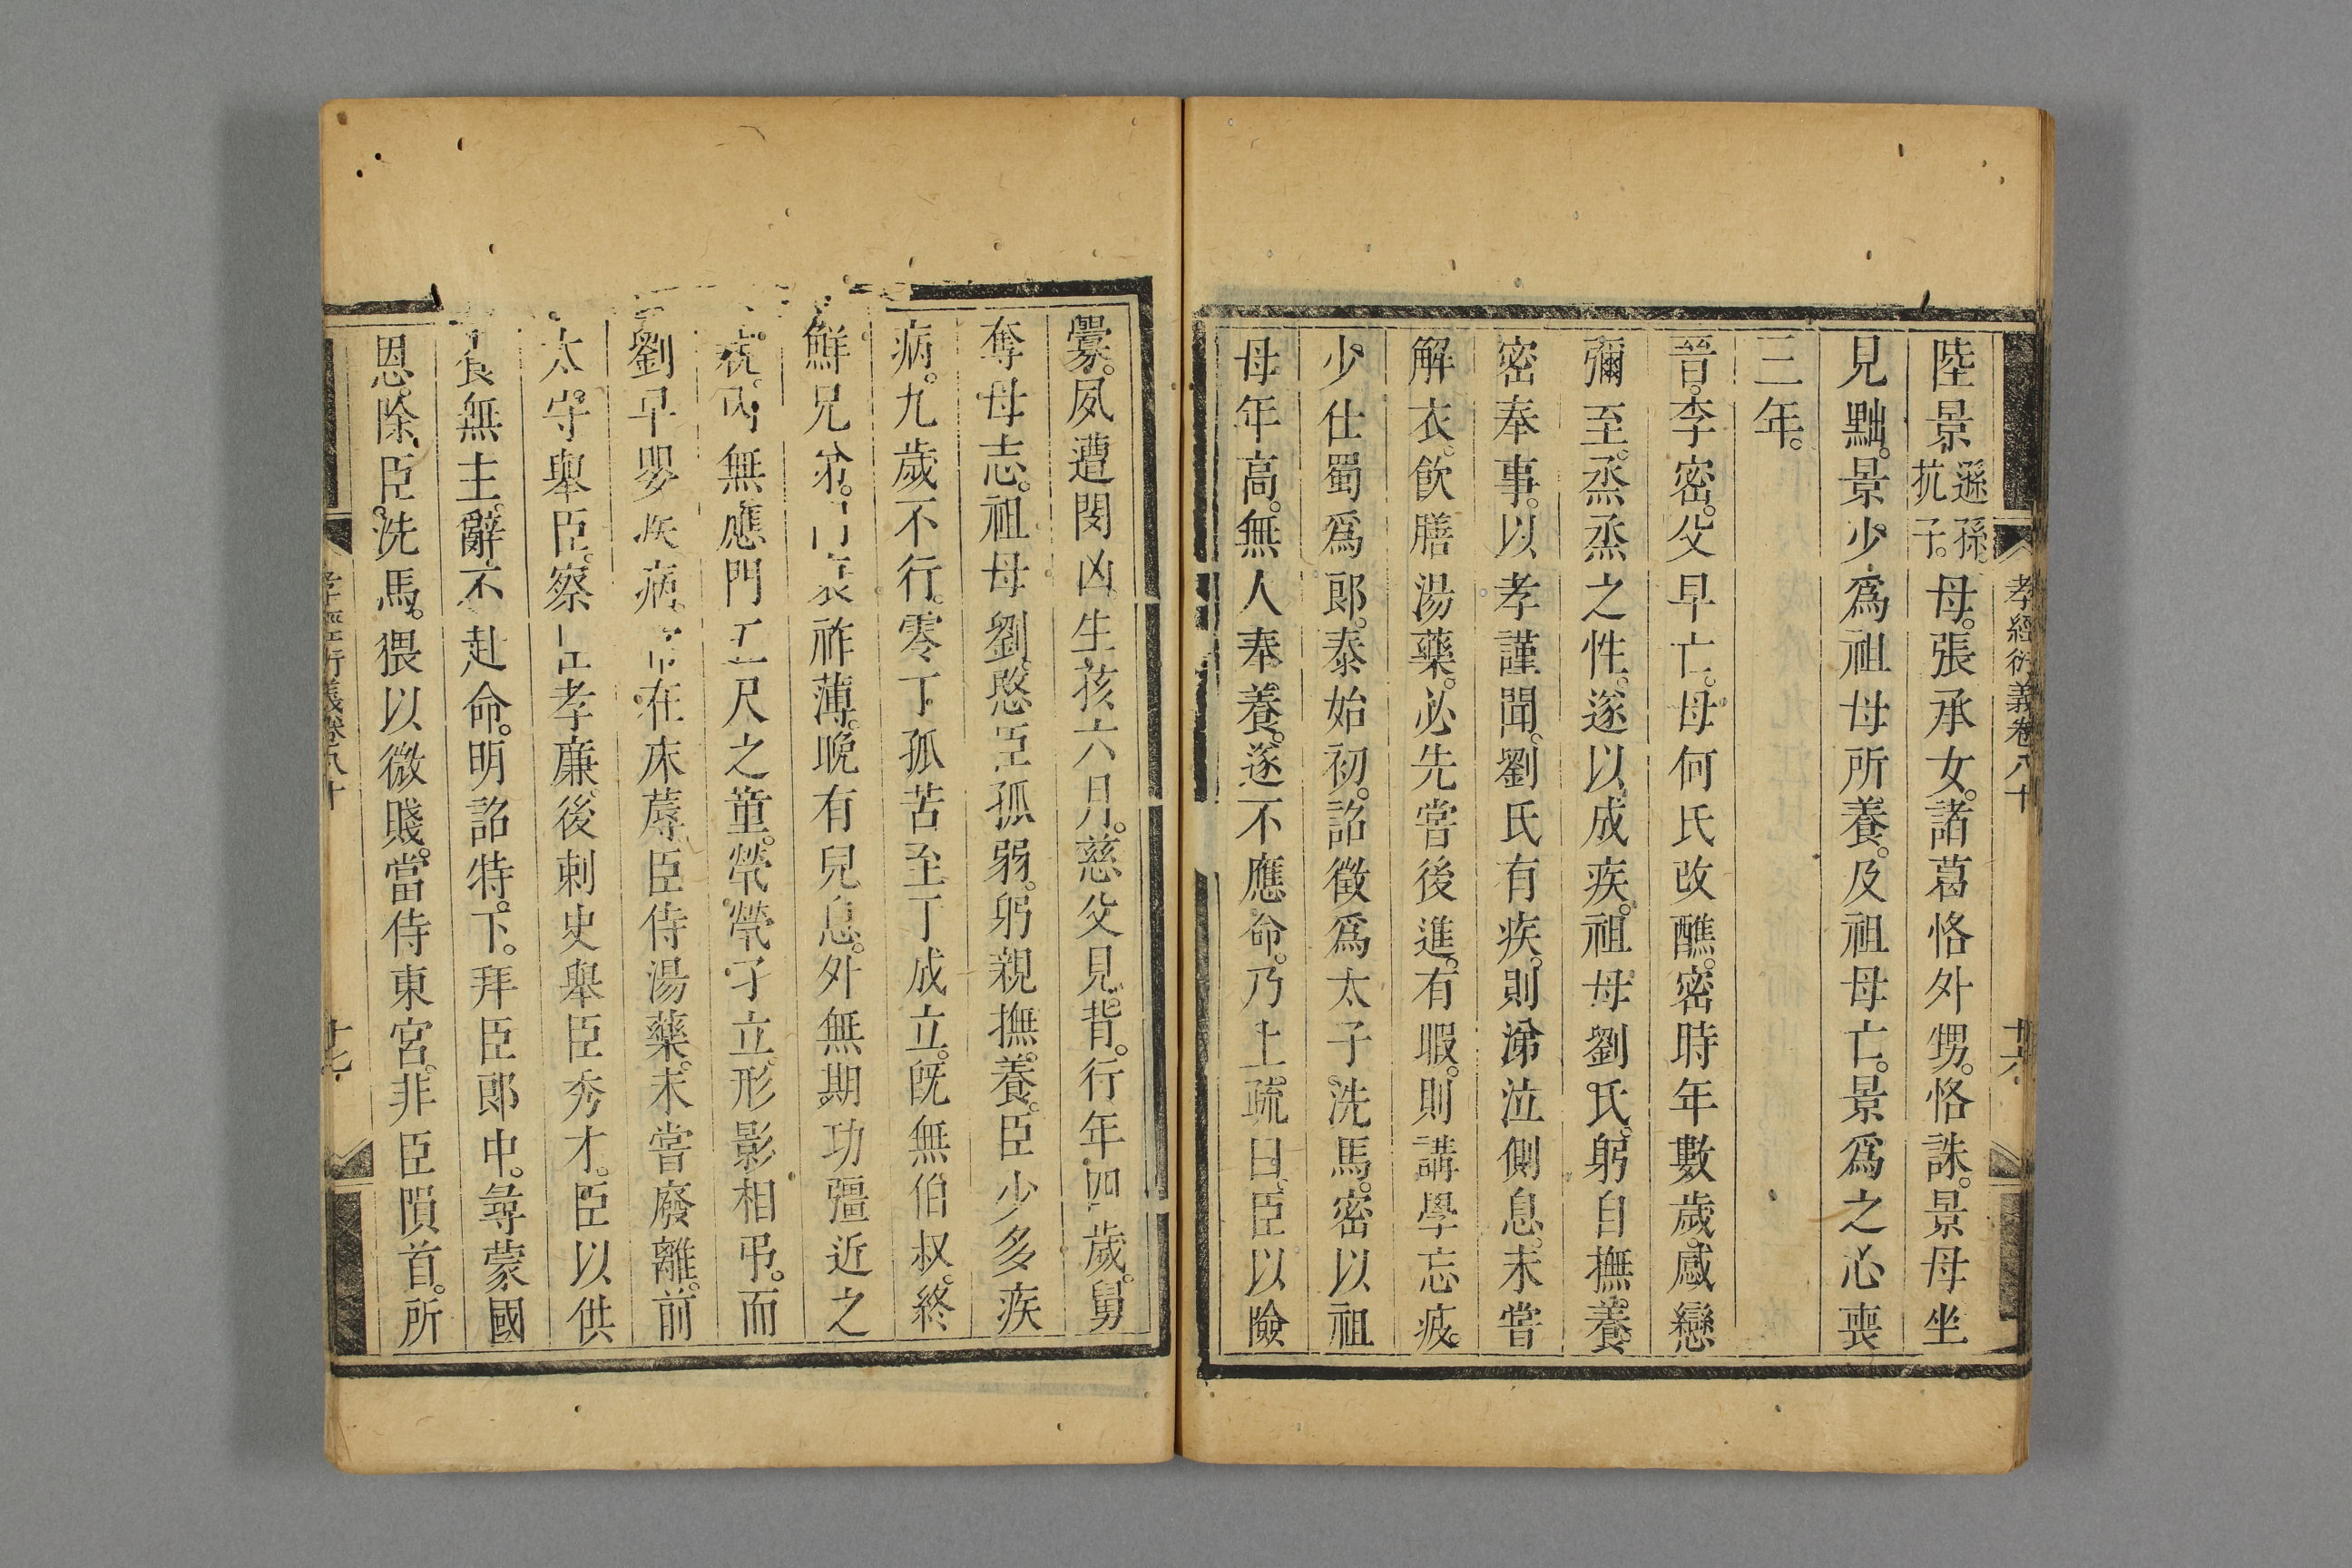 孝經衍義卷八十
十六
陸景遜孫。抗子。母。張承女。諸葛恪外甥。恪誅。景母坐
見黜。景少爲祖母所養。及祖母亡。景爲之心喪
三年。
晉。李密。父早亡。母何氏改醮。密時年數歲。感戀
彌至。烝烝之性。遂以成疾。祖母劉氏。躬自撫養。
密奉事。以孝謹聞。劉氏有疾。則涕泣側息。未嘗
解衣。飲膳湯藥。必先嘗後進。有暇。則講學忘疲。
少仕蜀爲郎。泰始初。詔徵爲太子洗馬。密以祖
母年高。無人奉養。遂不應命。乃上疏曰。臣以險
釁。夙遭閔凶生孩六月。慈父見背。行年四歲。舅
奪母志。祖母劉愍臣孤弱。躬親撫養。臣少多疾
病。九歲不行。零丁孤苦至于成立。旣無伯叔。終
鮮兄弟。門衰祚薄。晚有兒息。外無期功彊近之
親。內無應門五尺之童。煢煢孑立。形影相弔。而
劉早嬰疾病。常在床蓐。臣侍湯藥。未嘗廢離。前
太守舉臣。察孝廉。後刺史舉臣秀才。臣以供
養無主。辭不赴命。明詔特下。拜臣郎中。尋蒙國
恩。除臣洗馬。猥以微賤。當侍東宮。非臣隕首。所
孝經衍義卷八十
十七